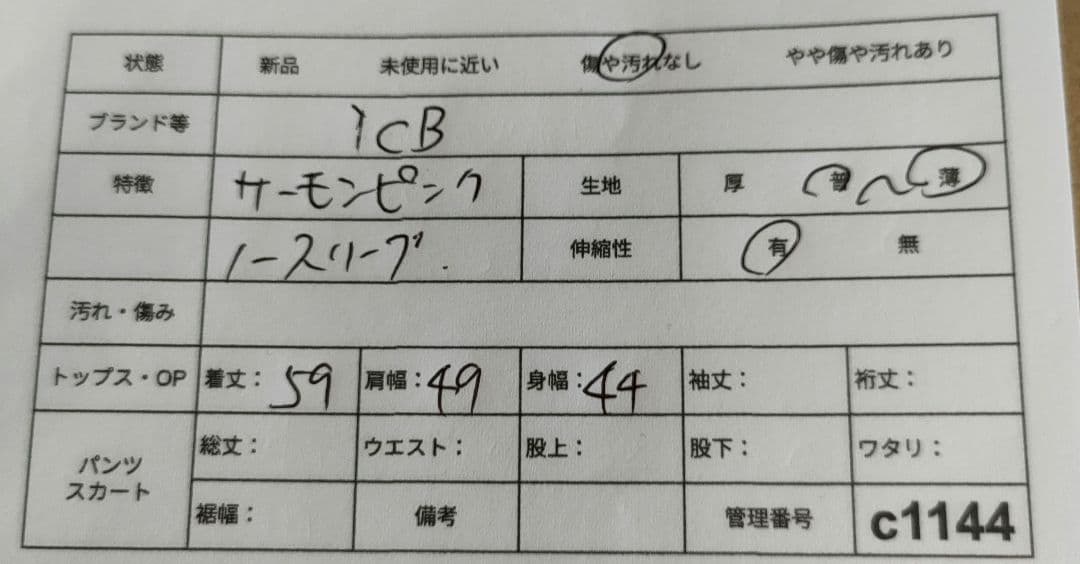 状態 新品 未使用に近い 傷や汚れなし やや傷や汚れあり
ブランド等 ICB
特徴 サーモンピンク 生地 厚 普 〜 薄
ノースリーブ. 伸縮性 有 無
汚れ・傷み
トップス・OP 着丈: 59 肩幅: 49 身幅: 44 袖丈: 裄丈:
パンツ スカート 総丈: ウエスト: 股上: 股下: ワタリ:
裾幅: 備考 管理番号 c1144